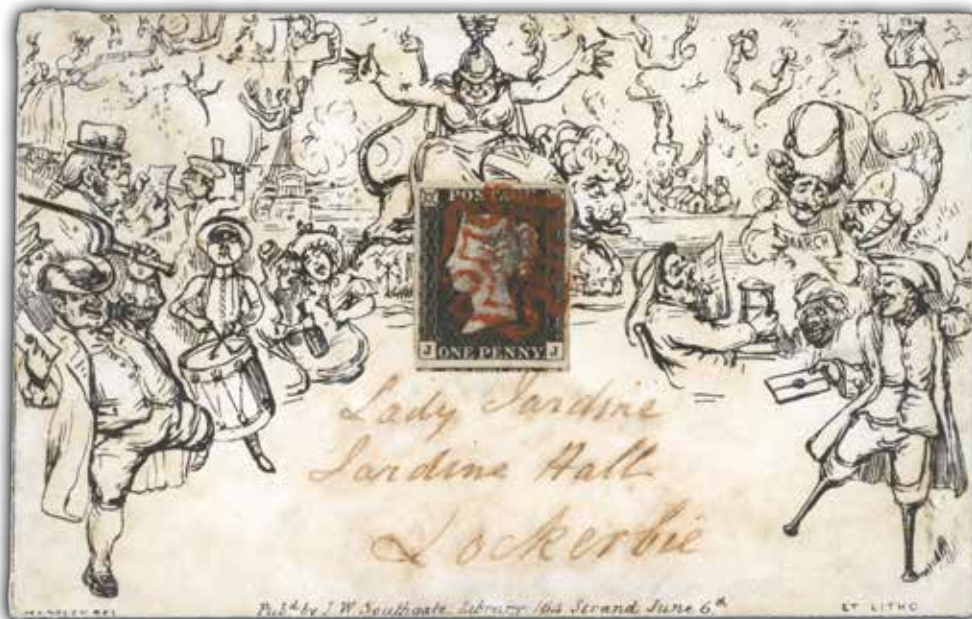 POSTAGE
MARCH
J ONE PENNY J
Lady Jardine
Jardine Hall
Lockerbie
Pub.d by J. W. Southgate. Library 164 Strand June 6th
ET LITHO